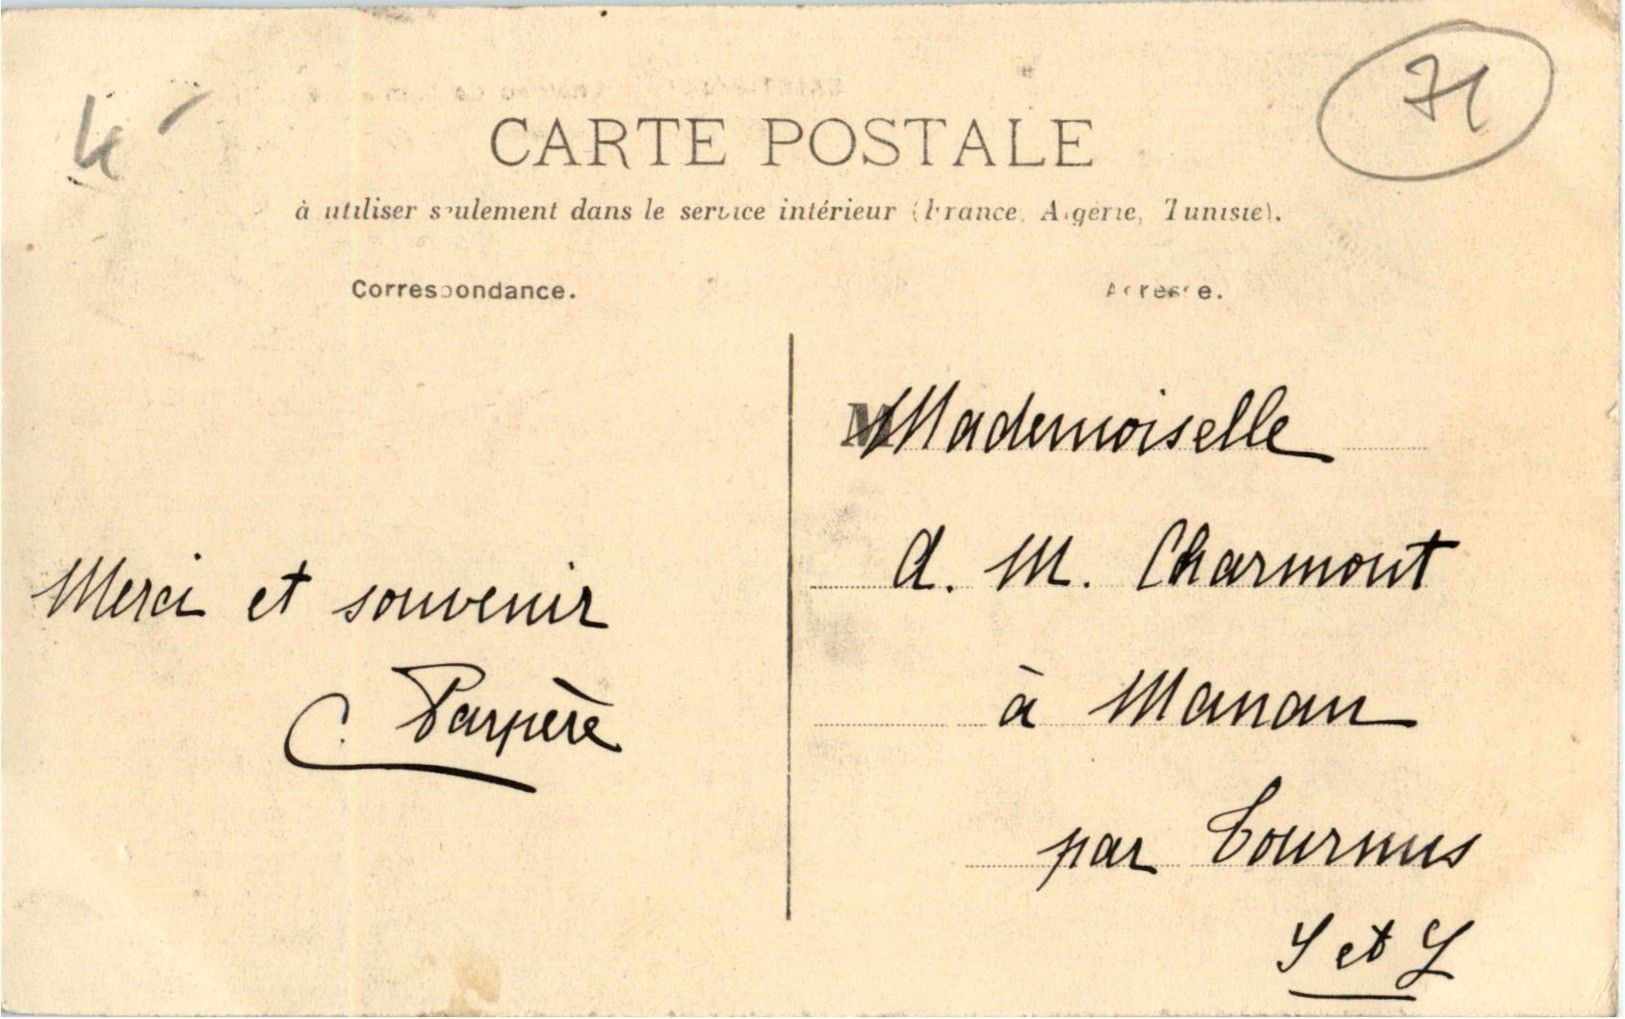 71
CARTE POSTALE
à utiliser seulement dans le service intérieur (France, Algérie, Tunisie).
Correspondance.
Adresse.
M Mademoiselle
A. M. Charmont
à Manan
par Tournus
S et L
Merci et souvenir
C. Parpère